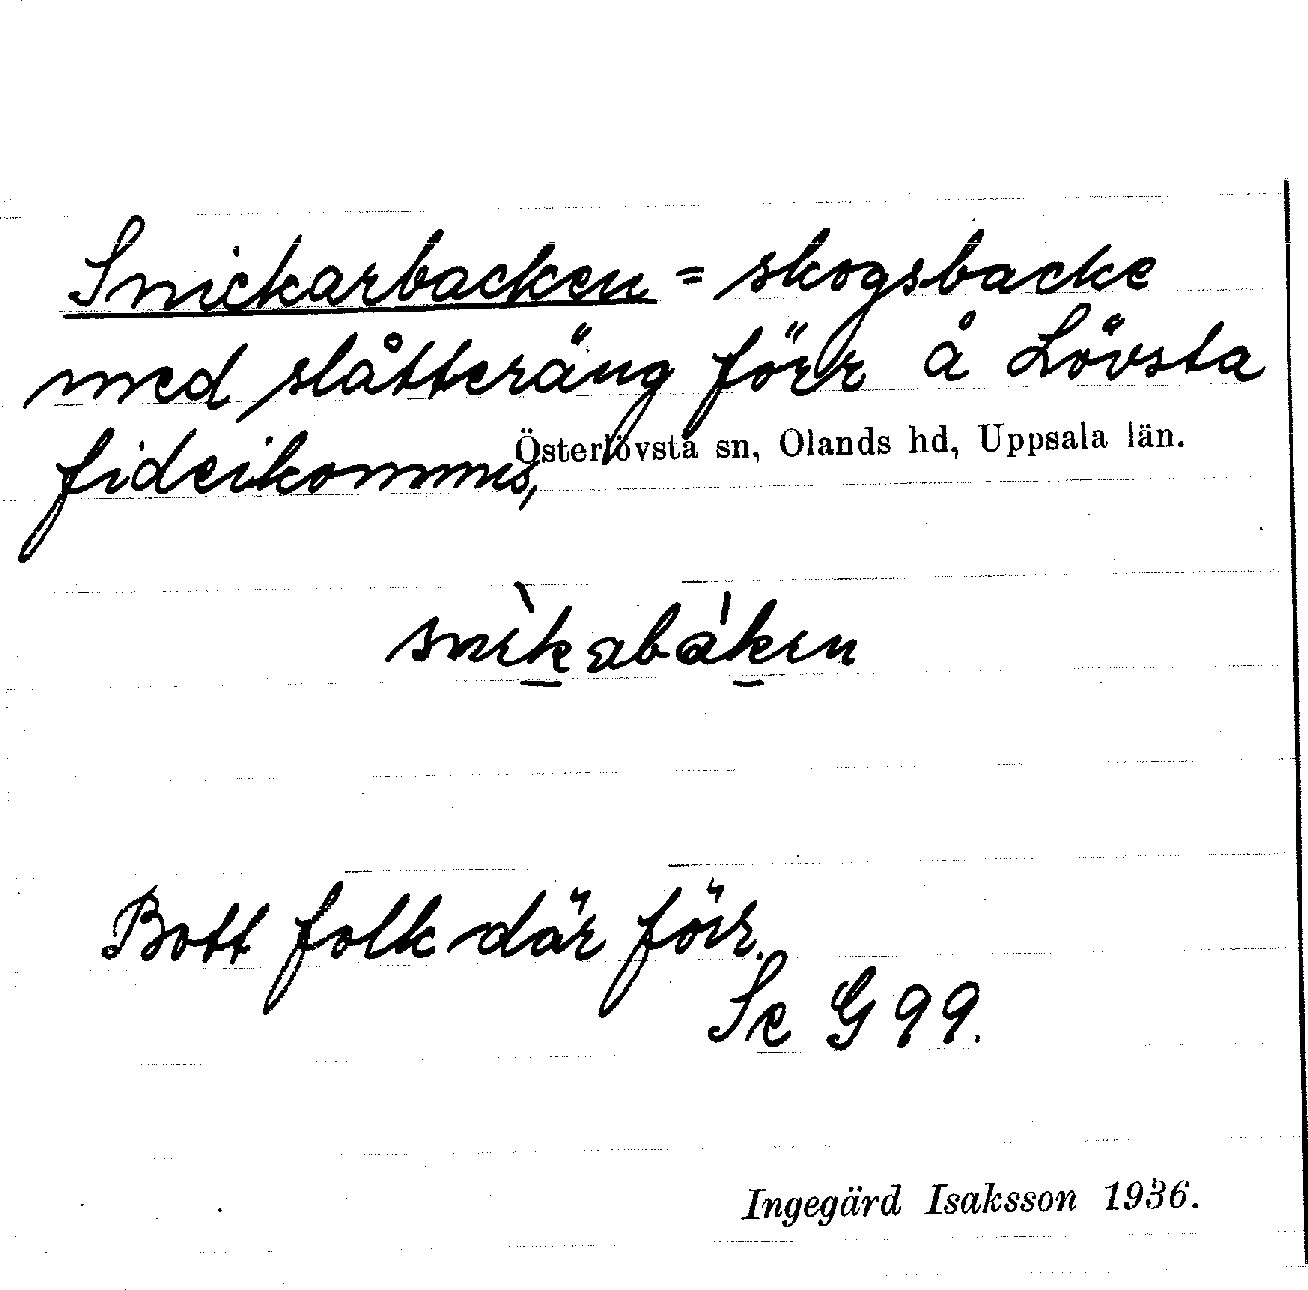 Snickarbacken = skogsbacke
med slåtteräng förr å Lövsta
fideikommis,
Österlövsta sn, Olands hd, Uppsala län.
snìkabákın
Bott folk där förr.
Se G 99.
Ingegärd Isaksson 1936.